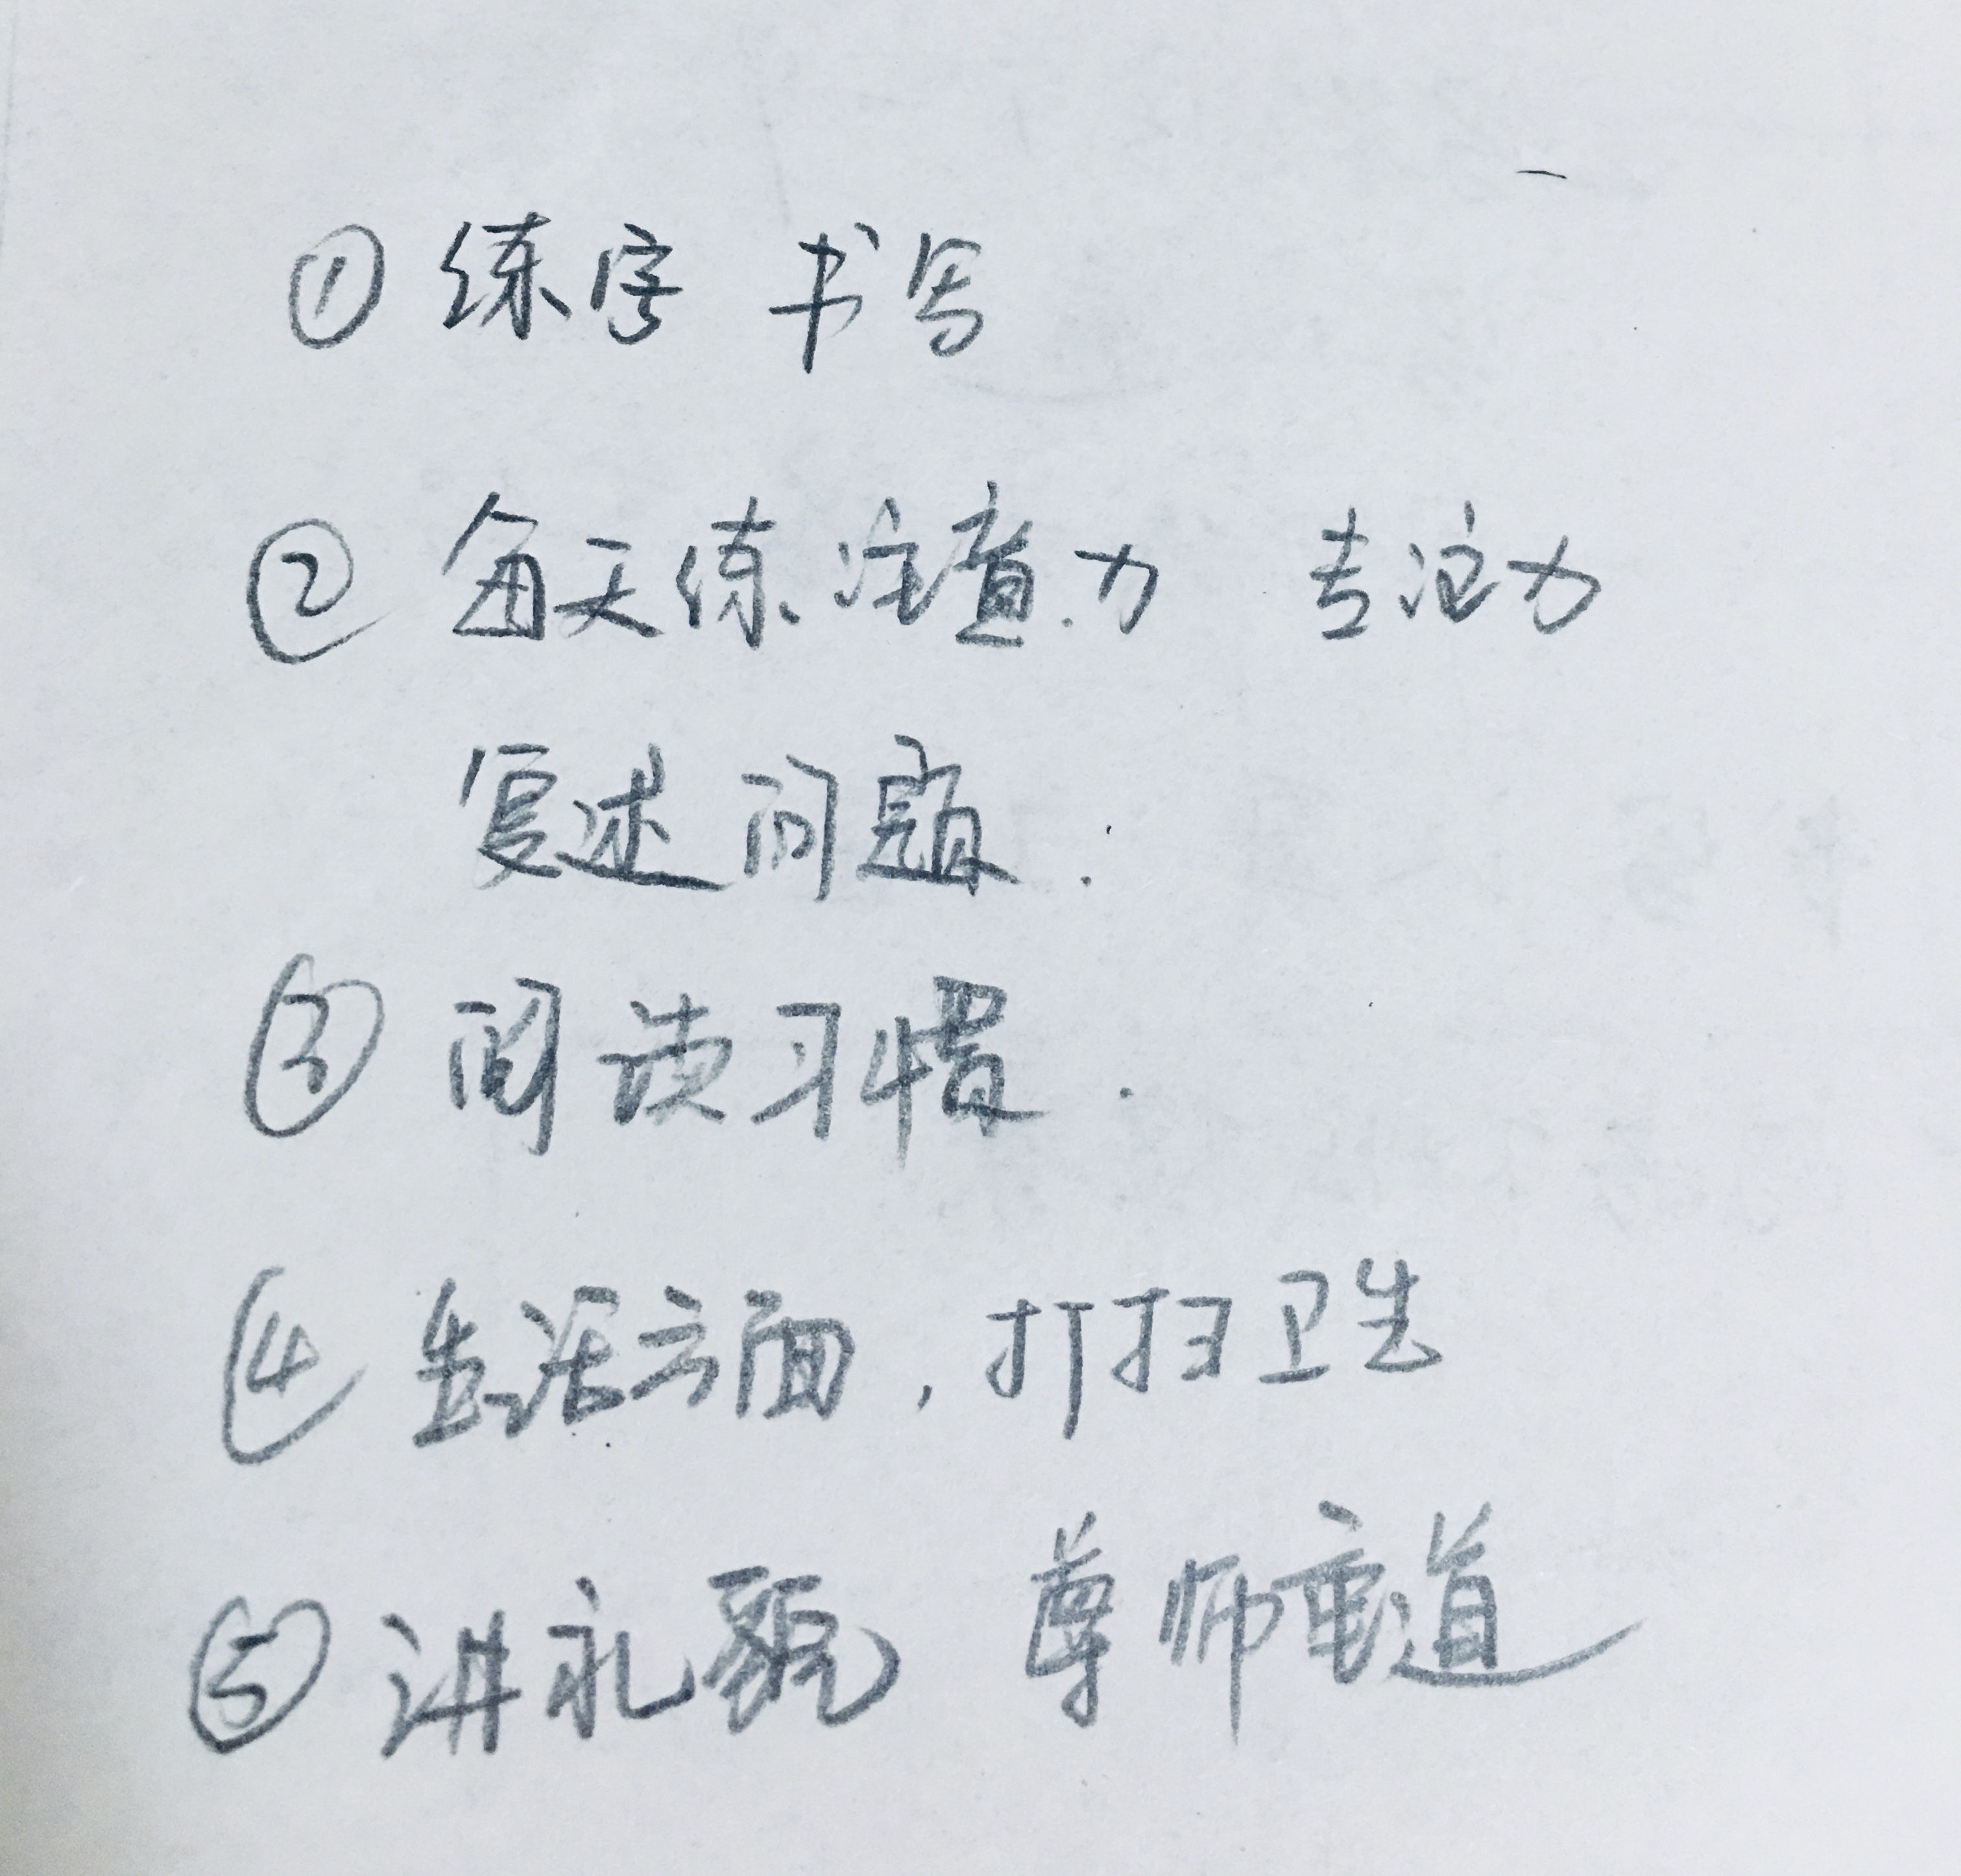 ①练字 书写
②每天练注意力 专注力
复述问题.
③阅读习惯.
④生活方面,打扫卫生
⑤讲礼貌 尊师重道